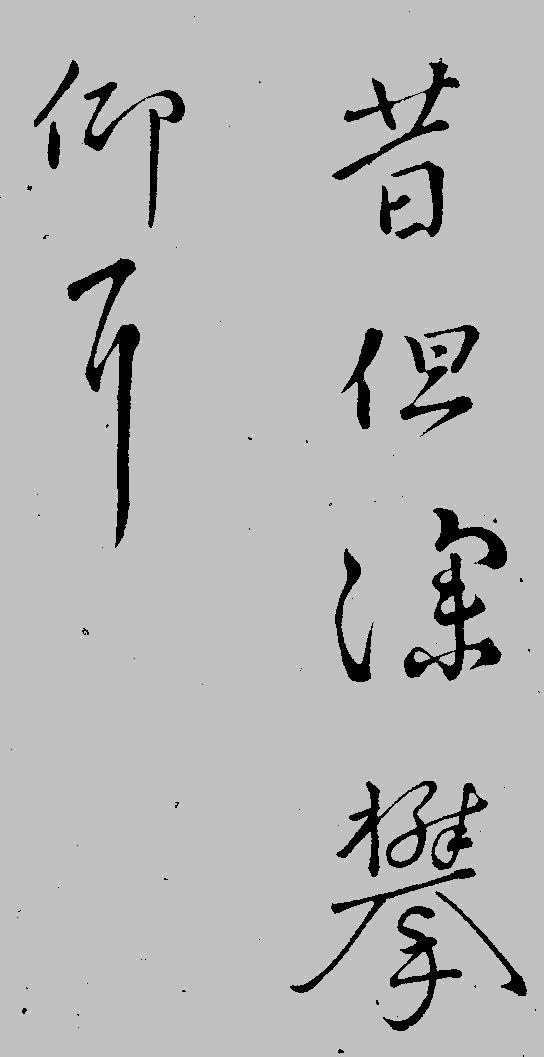 昔但深攀
仰耳